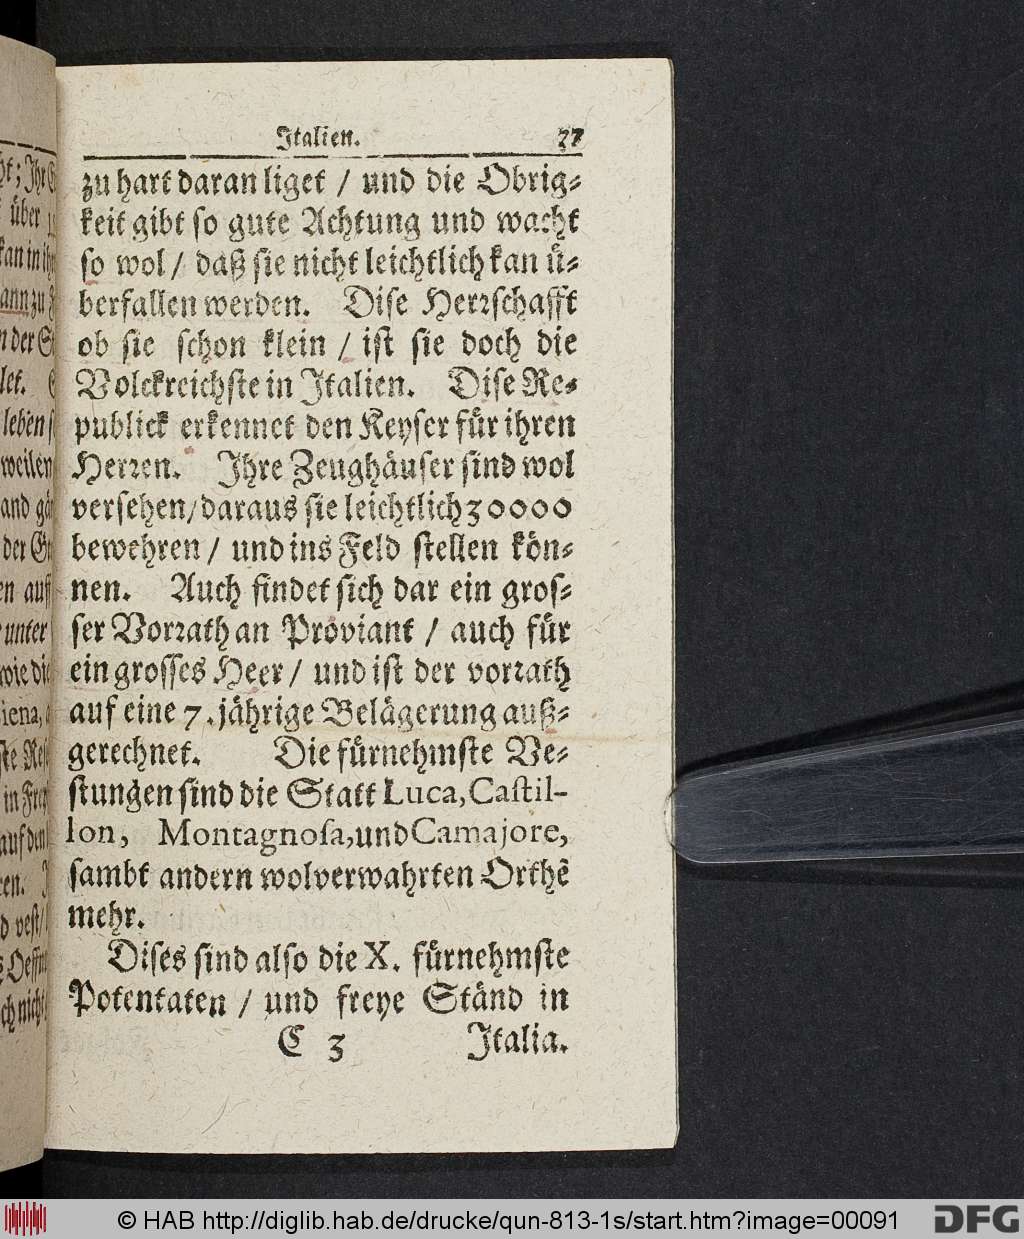 Italien. 37
zu hart daran liget / und die Obrig⸗
keit gibt so gute Achtung und wacht
so wol / daß sie nicht leichtlich kan ü⸗
berfallen werden. Dise Herrschafft
ob sie schon klein / ist sie doch die
Volckreichste in Italien. Dise Re⸗
publick erkennet den Keyser für ihren
Herren. Ihre Zeughäuser sind wol
versehen / daraus sie leichtlich 30000
bewehren / und ins Feld stellen kön⸗
nen. Auch findet sich dar ein gros⸗
ser Vorrath an Proviant / auch für
ein grosses Heer / und ist der vorrath
auf eine 7. jährige Belägerung auß⸗
gerechnet. Die fürnehmste Ve⸗
stungen sind die Statt Luca, Castil-
lon, Montagnosa, und Camajore,
sambt andern wolverwahrten Orthẽ
mehr.
Dises sind also die X. fürnehmste
Potentaten / und freye Ständ in
C 3 Italia.
ht; Ihr
über
kan in ih
ann zu
n der
let.
leben
weilen
and
der
en auff
unter
wie die
iena,
ste
in
auf den
en.
d vest /
ch nicht
© HAB http://diglib.hab.de/drucke/qun-813-1s/start.htm?image=00091
DFG